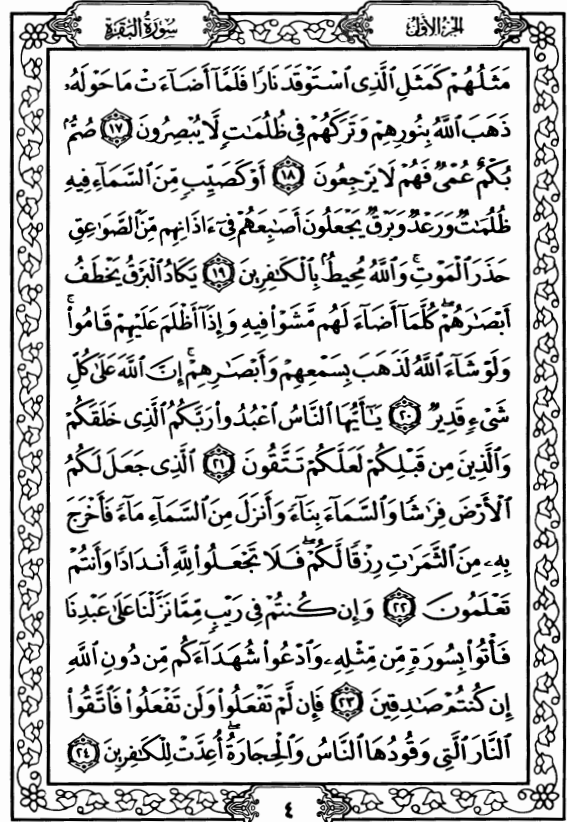 سورة البقرة
الجزء الأول
مَثَلُهُمْ كَمَثَلِ الَّذِي اسْتَوْقَدَ نَارًا فَلَمَّا أَضَاءَتْ مَا حَوْلَهُ
ذَهَبَ اللَّهُ بِنُورِهِمْ وَتَرَكَهُمْ فِي ظُلُمَاتٍ لَّا يُبْصِرُونَ ١٧ صُمٌّ
بُكْمٌ عُمْيٌ فَهُمْ لَا يَرْجِعُونَ ١٨ أَوْ كَصَيِّبٍ مِّنَ السَّمَاءِ فِيهِ
ظُلُمَاتٌ وَرَعْدٌ وَبَرْقٌ يَجْعَلُونَ أَصَابِعَهُمْ فِي ءَاذَانِهِم مِّنَ الصَّوَاعِقِ
حَذَرَ الْمَوْتِ ۚ وَاللَّهُ مُحِيطٌ بِالْكَافِرِينَ ١٩ يَكَادُ الْبَرْقُ يَخْطَفُ
أَبْصَارَهُمْ ۖ كُلَّمَا أَضَاءَ لَهُم مَّشَوْا فِيهِ وَإِذَا أَظْلَمَ عَلَيْهِمْ قَامُوا ۚ
وَلَوْ شَاءَ اللَّهُ لَذَهَبَ بِسَمْعِهِمْ وَأَبْصَارِهِمْ ۚ إِنَّ اللَّهَ عَلَىٰ كُلِّ
شَيْءٍ قَدِيرٌ ٢٠ يَا أَيُّهَا النَّاسُ اعْبُدُوا رَبَّكُمُ الَّذِي خَلَقَكُمْ
وَالَّذِينَ مِن قَبْلِكُمْ لَعَلَّكُمْ تَتَّقُونَ ٢١ الَّذِي جَعَلَ لَكُمُ
الْأَرْضَ فِرَاشًا وَالسَّمَاءَ بِنَاءً وَأَنزَلَ مِنَ السَّمَاءِ مَاءً فَأَخْرَجَ
بِهِ مِنَ الثَّمَرَاتِ رِزْقًا لَّكُمْ ۖ فَلَا تَجْعَلُوا لِلَّهِ أَندَادًا وَأَنتُمْ
تَعْلَمُونَ ٢٢ وَإِن كُنتُمْ فِي رَيْبٍ مِّمَّا نَزَّلْنَا عَلَىٰ عَبْدِنَا
فَأْتُوا بِسُورَةٍ مِّن مِّثْلِهِ وَادْعُوا شُهَدَاءَكُم مِّن دُونِ اللَّهِ
إِن كُنتُمْ صَادِقِينَ ٢٣ فَإِن لَّمْ تَفْعَلُوا وَلَن تَفْعَلُوا فَاتَّقُوا
النَّارَ الَّتِي وَقُودُهَا النَّاسُ وَالْحِجَارَةُ ۖ أُعِدَّتْ لِلْكَافِرِينَ ٢٤
٤